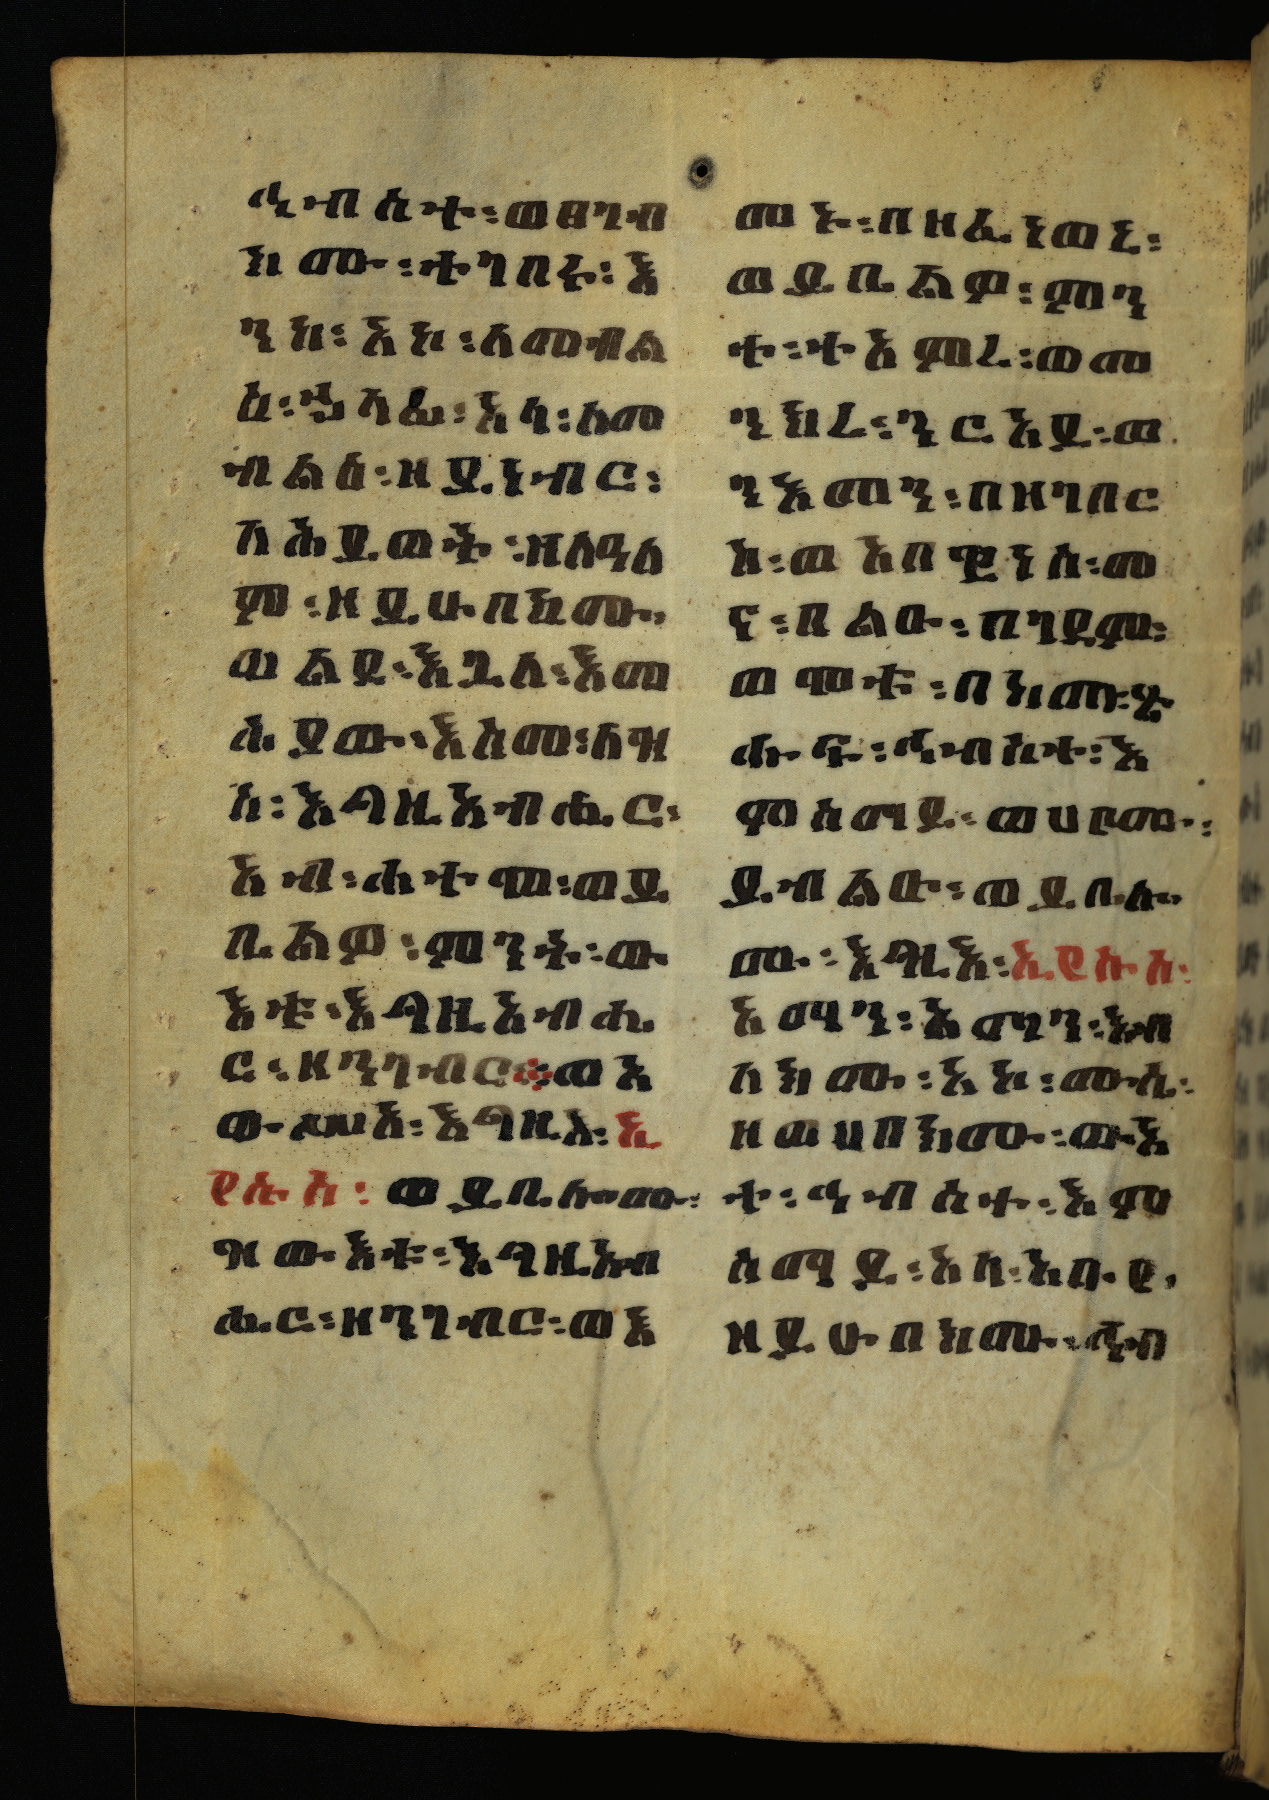 ኅብስተ፡ወፀገብ
ክሙ፡ተገበሩ፡እ
ንከ፡አኮ፡ለመብል
ዕ፡ኃላፊ፡እላ፡ለመ
ብልዕ፡ዘይነብር፡
ለሕይወት፡ዘለዓለ
ም፡ዘይሁበክሙ፡
ወልደ፡እጓለ፡እመ
ሕያው፡እስመ፡ለዝ
ሰ፡እግዚአብሔር፡
አብ፡ሐተሞ፡ወይ
ቤልዎ፡ምንት፡ው
እቱ፡እግዚአብሔ
ር፡ዘንገብር፡፡ወአ
ውሥአ፡እግዚእ፡ኢ
የሱስ፡ወይቤሎሙ፡
ዝውእቱ፡እግዚአብ
ሔር፡ዘንገብር፡ወእ
መኑ፡በዘፈነወኒ፡
ወይቤልዎ፡ምን
ተ፡ተአምረ፡ወመ
ንክረ፡ንርአይ፡ወ
ንእመን፡በዘገበር
ከ፡ወአበዊነሰ፡መ
ና፡በልዑ፡በገዳም፡
ወሞቱ፡በከመ፡ጽ
ሑፍ፡ኅብስተ፡እ
ምሰማይ፡ወሀቦሙ፡
ይብልዑ፡ወይቤሎ
ሙ፡እግዚእ፡ኢየሱስ፡
እማን፡እማን፡እብ
ለክሙ፡አኮ፡ሙሴ፡
ዘወሀበክሙ፡ውእ
ተ፡ኅብስተ፡እም
ሰማይ፡አላ፡አቡየ፡
ዘይሁበክሙ፡ኅብ